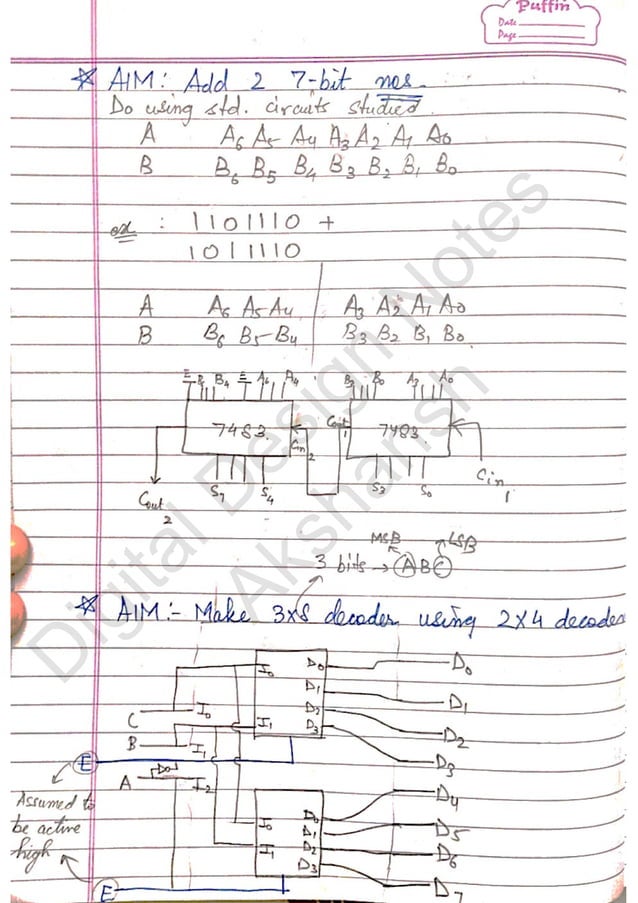 Puffin
Date
Page
* AIM: Add 2 7-bit nos.
Do using std. circuits studied.
A A6 A5 A4 A3 A2 A1 A0
B B6 B5 B4 B3 B2 B1 B0
ex : 1101110 +
1011110
A A6 A5 A4 A3 A2 A1 A0
B B6 B5 B4 B3 B2 B1 B0
B4 A6 A4 B3 B0 A3 A0
7483 Cin2 Cout1 7483
Cout2 S7 S4 S3 S0 Cin1
MSB LSB
3 bits → A B C
* AIM:- Make 3x8 decoder using 2x4 decoder
I0 D0 D0
D1 D1
C I0 I1 D2 D2
B I1 D3 D3
E
A I2 D4
Assumed to be active high
I0 D0 D5
D1
I1 D2 D6
D3
E D7
Digital Design Notes
Akshansh